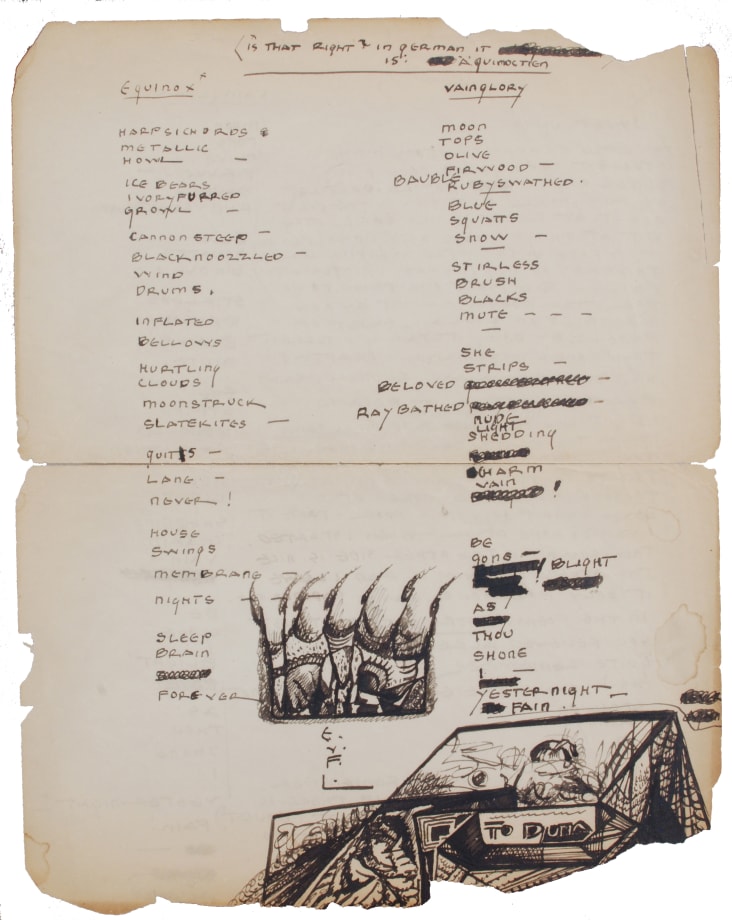 (IS THAT RIGHT? IN GERMAN IT
IS: ÄQUINOCTIEN
EQUINOX*
HARPSICHORDS
METALLIC
HOWL —
ICE BEARS
IVORYFURRED
GROWL —
CANNON STEEP —
BLACKNOOZZLED —
WIND
DRUMS.
INFLATED
BELLOWS
HURTLING
CLOUDS
MOONSTRUCK
SLATEKITES —
QUITS —
LANE —
NEVER!
HOUSE
SWINGS
MEMBRANE —
NIGHTS — — —
SLEEP
BRAIN
FOREVER
VAINGLORY
MOON
TOPS
OLIVE
FIRWOOD —
BAUBLE
RUBYSWATHED.
BLUE
SQUATTS
SNOW —
STIRLESS
BRUSH
BLACKS
MUTE — — —
SHE
STRIPS —
BELOVED —
RAY BATHED —
NUDE
LIGHT
SHEDDING
CHARM
VAIN
!
BE
GONE —
! BLIGHT
AS
THOU
SHONE
I —
YESTERNIGHT —
FAIN.
E.
V.
F.
L.
TO DUNA